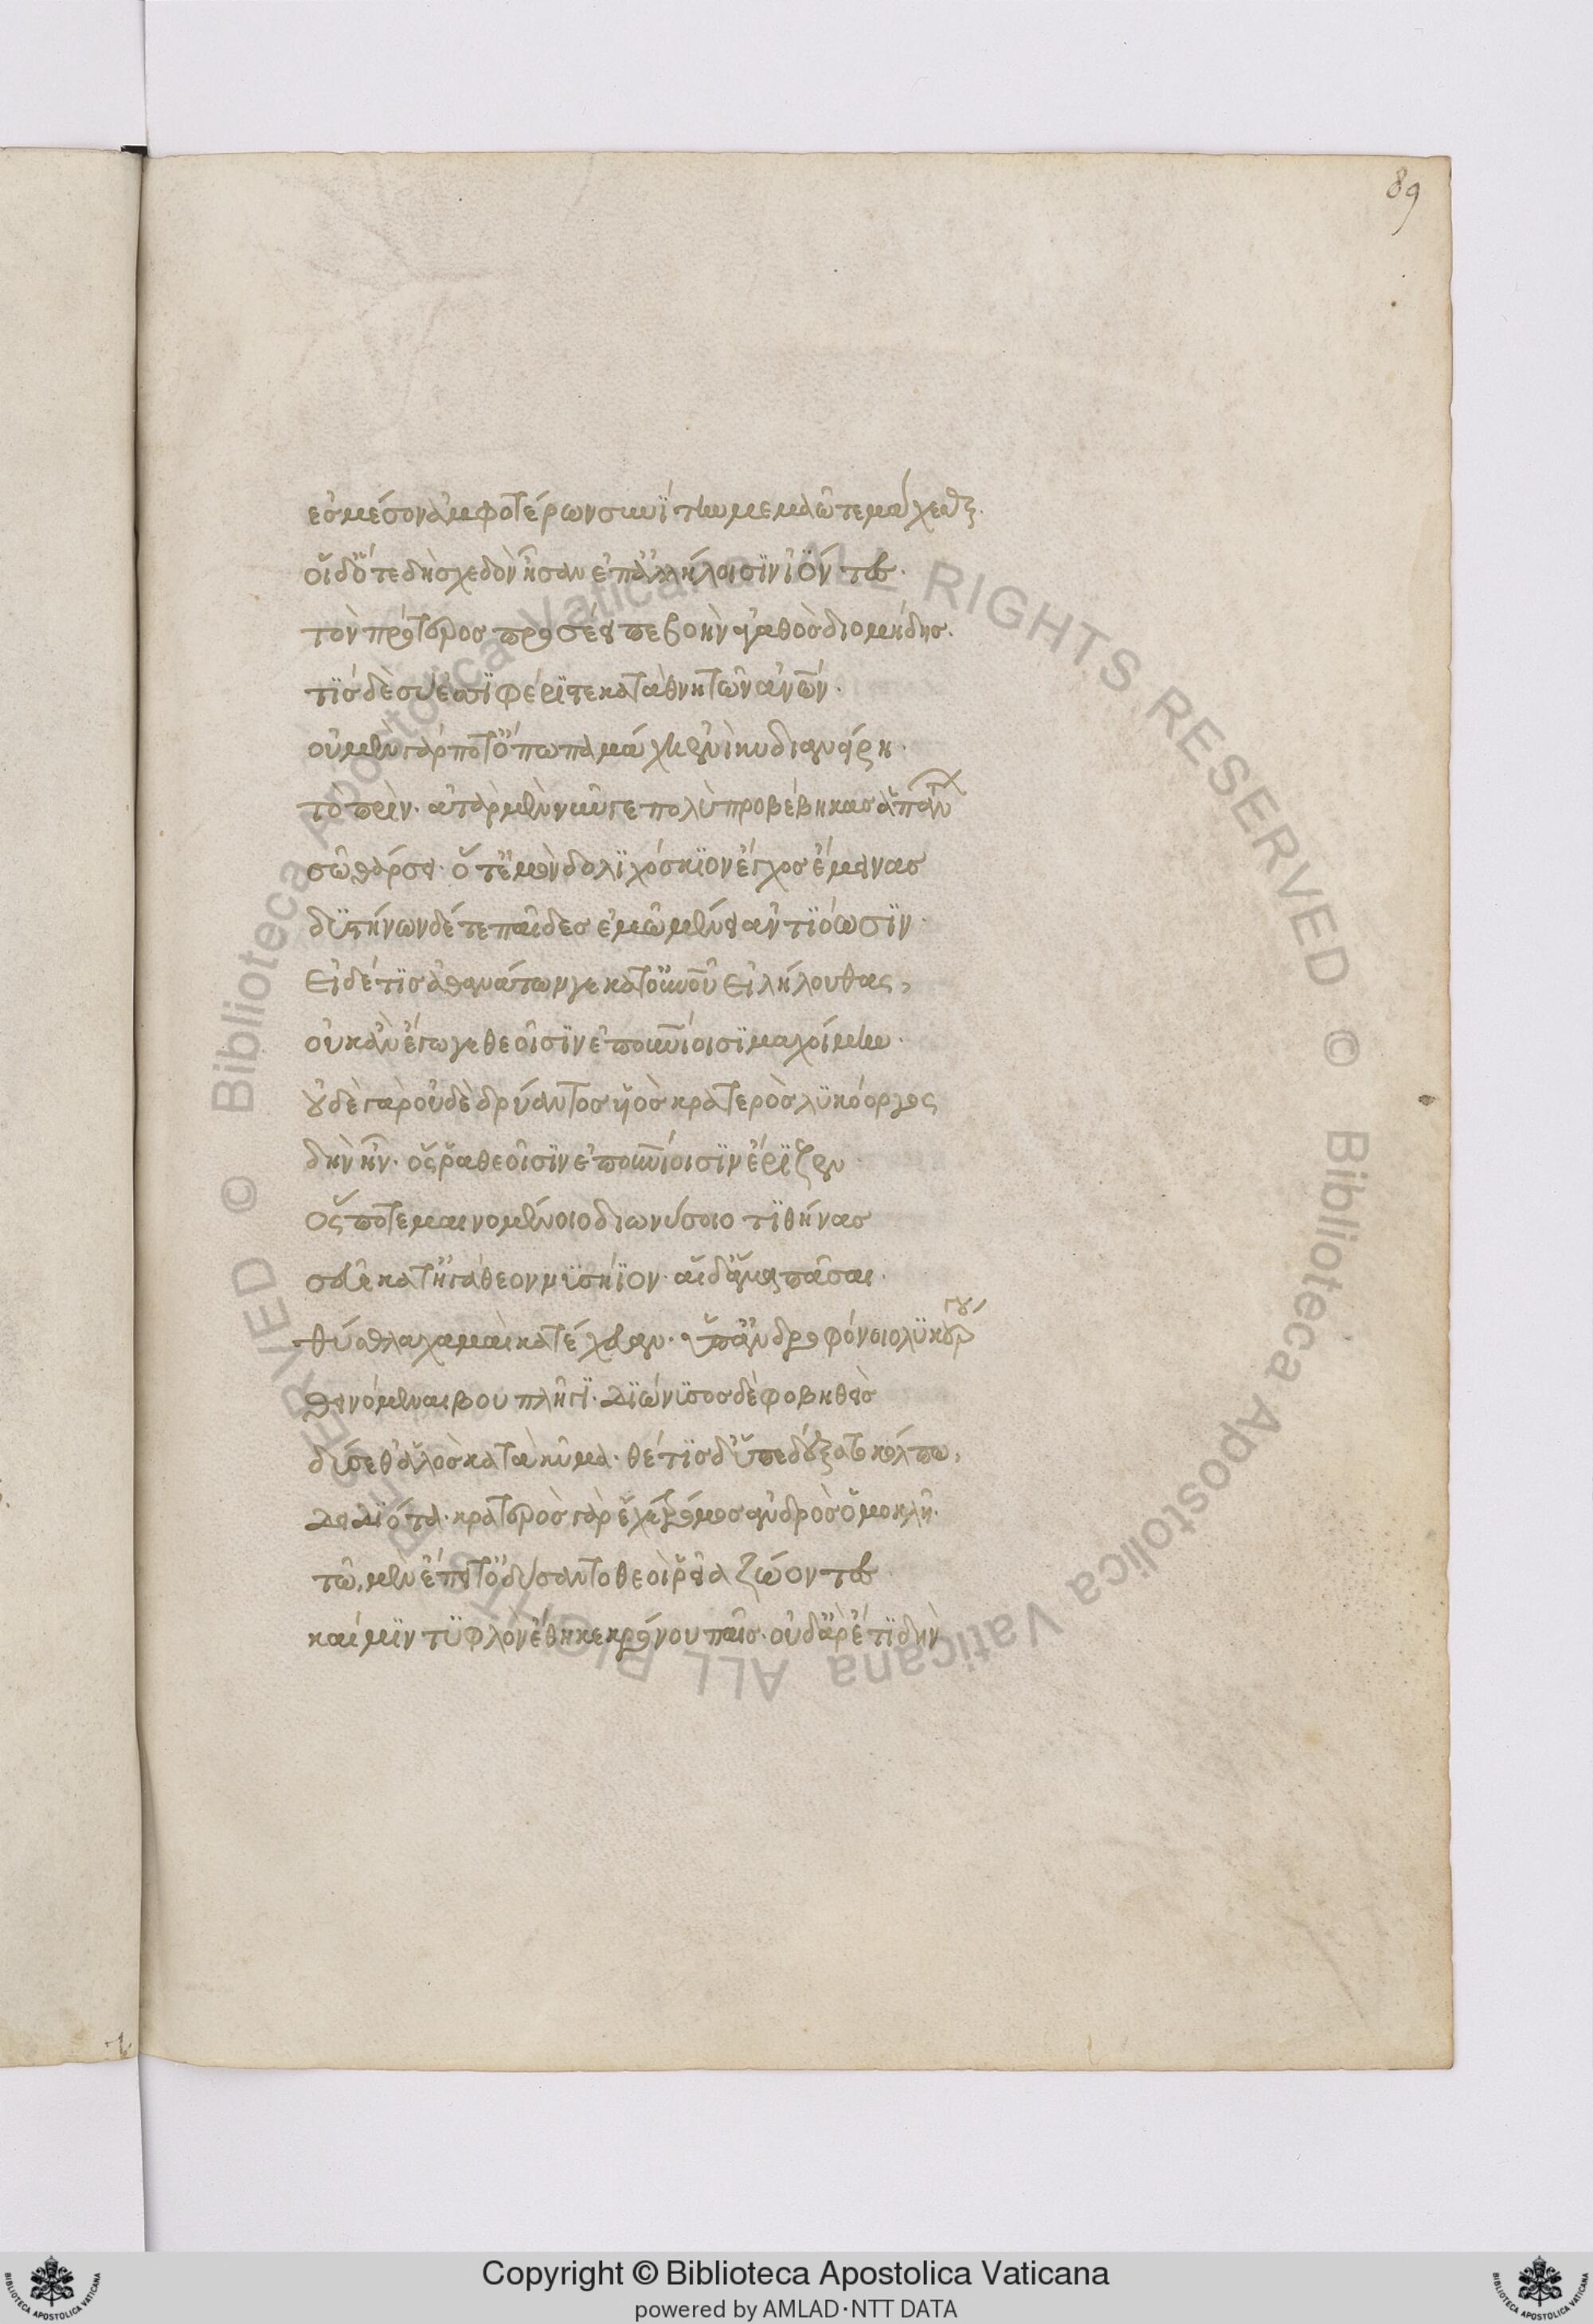 89
ἐς μέσον ἀμφοτέρων συνίτην μεμαῶτε μάχεσθαι.
οἵ δ' ὅτε δὴ σχεδὸν ἦσαν ἐπ' ἀλλήλοισιν ἰόντες.
τὸν πρότερος προσέειπε βοὴν ἀγαθὸς διομήδης.
τίς δὲ σύ ἐσσι φέριστε καταθνητῶν ἀνῶν.
οὐ μὲν γάρ ποτ' ὄπωπα μάχη ἐνὶ κυδιανείρη.
τὸ πρίν. ἀτὰρ μὲν νῦν γε πολὺ προβέβηκας ἁπάντων
σῶ θάρσει. ὅ τ' ἐμὸν δολιχόσκιον ἔγχος ἔμεινας
δυστήνων δέ τε παῖδες ἐμῶ μένει ἀντιόωσιν.
εἰ δέ τις ἀθανάτων γε κατ' οὐνοῦ εἰλήλουθας,
οὐκ ἂν ἔγωγε θεοῖσιν ἐπουνίοισι μαχοίμην.
οὐδὲ γὰρ οὐδὲ δρύαντος υἱὸς κρατερὸς λυκόοργος
δὴν ἦν. ὅς ῥα θεοῖσιν ἐπουνίοισιν ἔριζεν
ὅς ποτε μαινομένοιο διωνύσοιο τιθήνας
σεῦε κατ' ἠγάθεον νισήϊον. αἱ δ' ἅμα πᾶσαι.
θύσθλα χαμαὶ κατέχευαν. ὑπ' ἀνδροφόνοιο λυκούργου
θεινόμεναι βουπλῆγι. διώνισος δὲ φοβηθεὶς
δύσεθ' ἁλὸς κατὰ κῦμα. θέτις δ' ὑπεδέξατο κόλπω,
δειδιότα. κρατερὸς γὰρ ἔχε τρόμος ἀνδρὸς ὁμοκλῆ.
τῶ, μὲν ἔπειτ' ὀδύσαντο θεοὶ ῥεῖα ζώοντες
καί μιν τυφλὸν ἔθηκε κρόνου παῖς. οὐδ' ἂρ ἔτι δὴν
© Biblioteca Apostolica Vaticana ALL RIGHTS RESERVED © Biblioteca Apostolica Vaticana ALL RIGHTS RESERVED
BIBLIOTECA APOSTOLICA VATICANA
Copyright © Biblioteca Apostolica Vaticana
powered by AMLAD·NTT DATA
BIBLIOTECA APOSTOLICA VATICANA